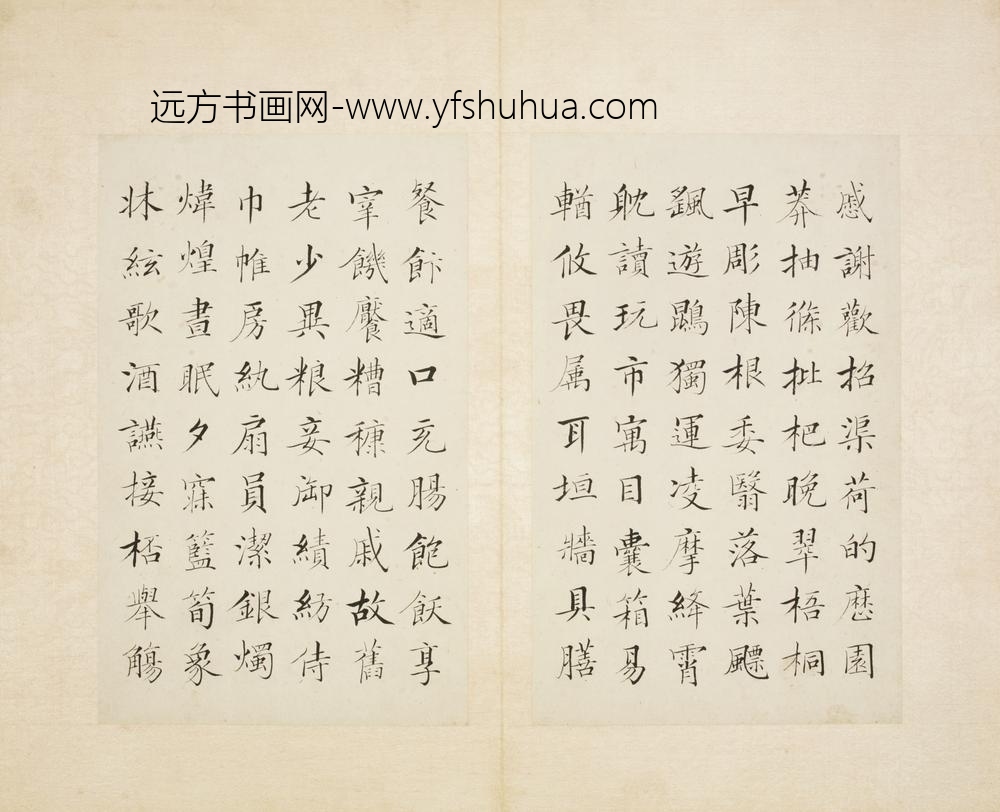 远方书画网-www.yfshuhua.com
慼謝歡招渠荷的歷園
莽抽條枇杷晚翠梧桐
早彫陳根委翳落葉飃
颻遊鵾獨運凌摩絳霄
耽讀玩市寓目囊箱易
輶攸畏属耳垣牆具膳
餐飰適口充腸飽飫享
宰饑饜糟糠親戚故舊
老少異粮妾御績紡侍
巾帷房紈扇員潔銀燭
煒煌晝眠夕寐籃筍象
牀絃歌酒讌接桮舉觴